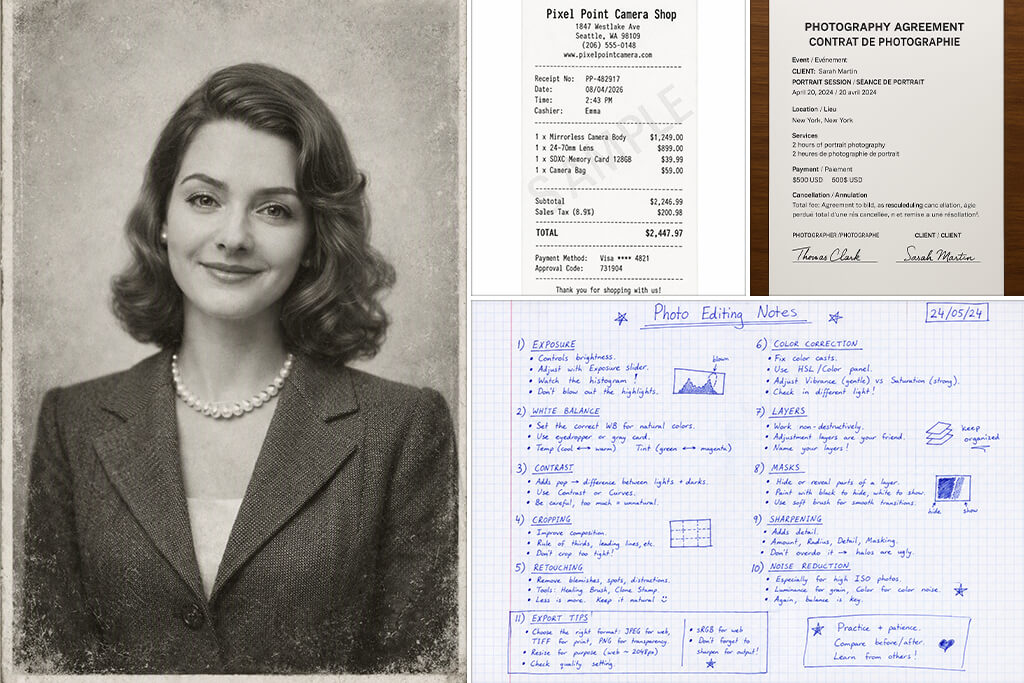 Pixel Point Camera Shop
1847 Westlake Ave
Seattle, WA 98109
(206) 555-0148
www.pixelpointcamera.com
Receipt No: PP-482917
Date: 08/04/2026
Time: 2:43 PM
Cashier: Emma
1 x Mirrorless Camera Body $1,249.00
1 x 24-70mm Lens $899.00
1 x SDXC Memory Card 128GB $39.99
1 x Camera Bag $59.00
SAMPLE
Subtotal $2,246.99
Sales Tax (8.9%) $200.98
TOTAL $2,447.97
Payment Method: Visa **** 4821
Approval Code: 731904
Thank you for shopping with us!
PHOTOGRAPHY AGREEMENT
CONTRAT DE PHOTOGRAPHIE
Event / Evénement
CLIENT: Sarah Martin
PORTRAIT SESSION / SÉANCE DE PORTRAIT
April 20, 2024 / 20 avril 2024
Location / Lieu
New York, New York
Services
2 hours of portrait photography
2 heures de photographie de portrait
Payment / Paiement
$500 USD 600$ USD
Cancellation / Annulation
Total fee: Agreement to bild, as resculeduling cancellation, àgie
perdue total d'une rés cancellée, n et remise a une résollation².
PHOTOGRAPHER /PHOTOGRAPHE CLIENT / CLIENT
Thomas Clark Sarah Martin
Photo Editing Notes
24/05/24
1) EXPOSURE
• Controls brightness.
• Adjust with Exposure slider.
• Watch the histogram!
• Don't blow out the highlights.
blown
2) WHITE BALANCE
• Set the correct WB for natural colors.
• Use eyedropper or gray card.
• Temp (cool ↔ warm) Tint (green ↔ magenta)
3) CONTRAST
• Adds pop → difference between lights + darks.
• Use Contrast or Curves.
• Be careful, too much = unnatural.
4) CROPPING
• Improve composition.
• Rule of thirds, leading lines, etc.
• Don't crop too tight!
5) RETOUCHING
• Remove blemishes, spots, distractions.
• Tools: Healing Brush, Clone Stamp.
• Less is more. Keep it natural ☺
6) COLOR CORRECTION
• Fix color casts.
• Use HSL / Color panel.
• Adjust Vibrance (gentle) vs Saturation (strong).
• Check in different light!
7) LAYERS
• Work non-destructively.
• Adjustment layers are your friend.
• Name your layers!
keep
organized
8) MASKS
• Hide or reveal parts of a layer.
• Paint with black to hide, white to show.
• Use soft brush for smooth transitions.
hide show
9) SHARPENING
• Adds detail.
• Amount, Radius, Detail, Masking.
• Don't overdo it → halos are ugly.
10) NOISE REDUCTION
• Especially for high ISO photos.
• Luminance for grain, Color for color noise.
• Again, balance is key.
11) EXPORT TIPS
• Choose the right format: JPEG for web,
TIFF for print, PNG for transparency.
• Resize for purpose (web ~ 2048px)
• Check quality setting.
• sRGB for web
• Don't forget to
sharpen for output!
Practice + patience.
Compare before/after.
Learn from others!